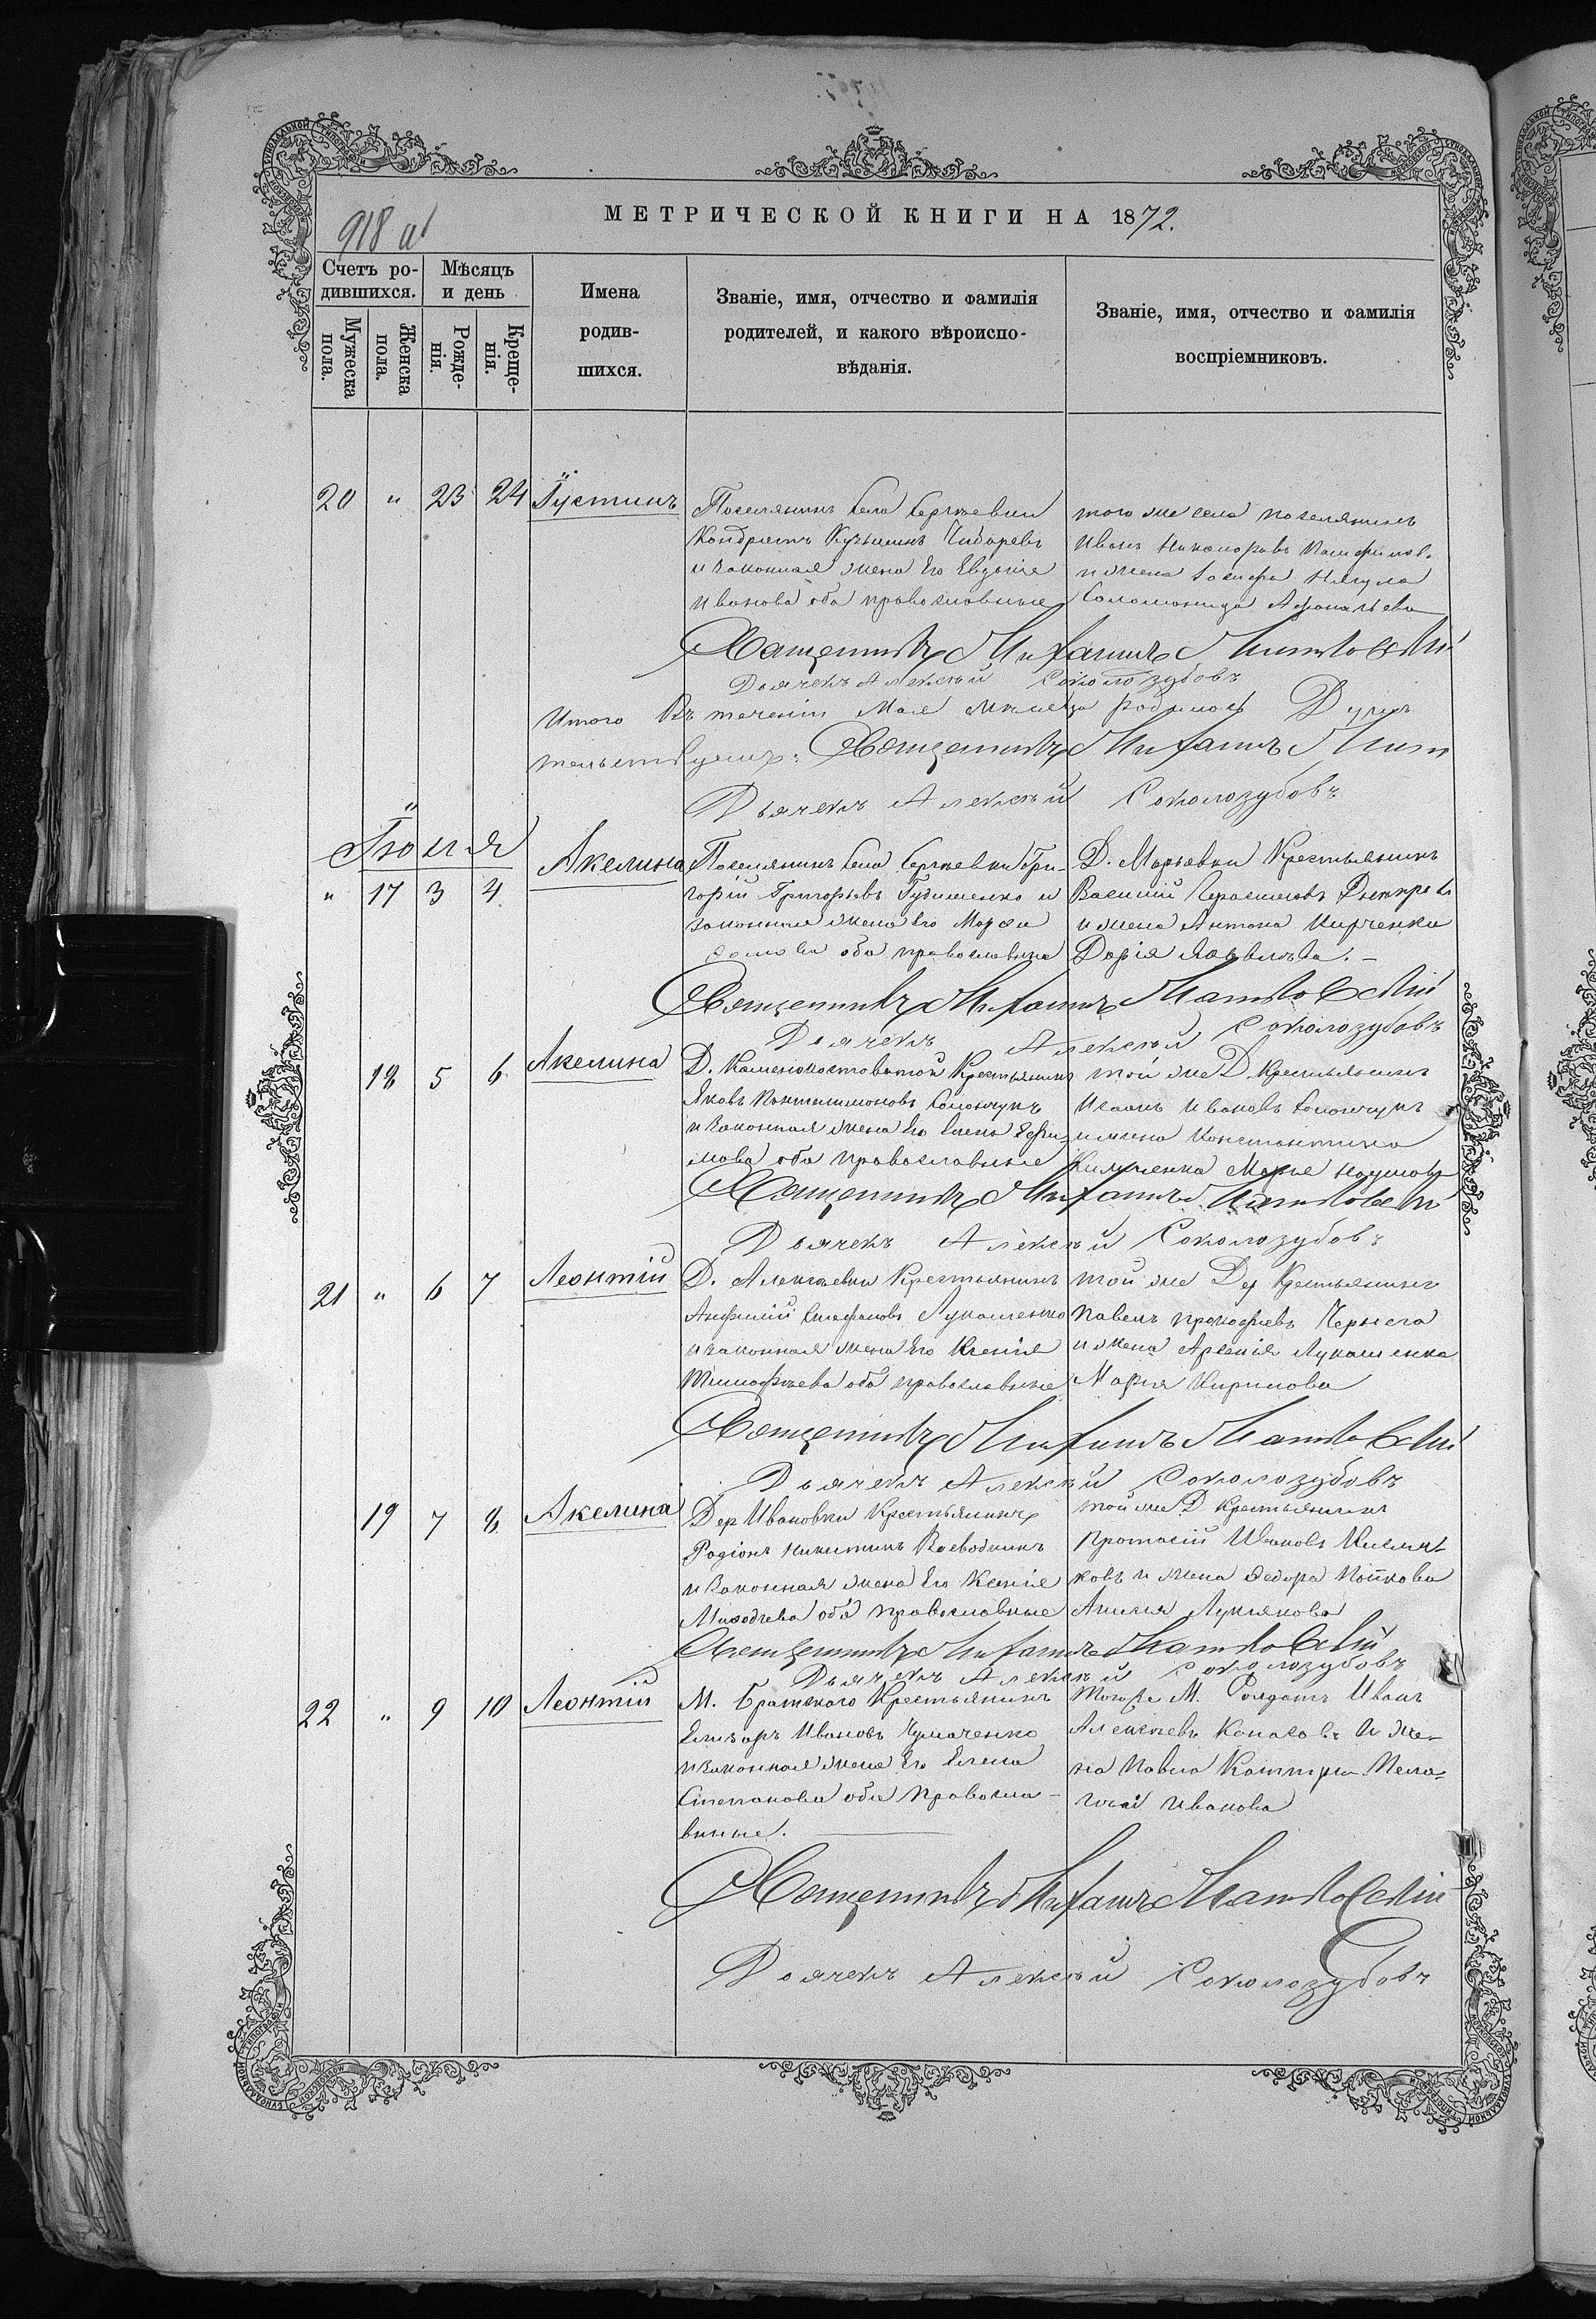 МЕТРИЧЕСКОЙ КНИГИ НА 1872.
918 об
Счетъ родившихся.
Мѣсяцъ и день
Имена родившихся.
Званіе, имя, отчество и фамилія родителей, и какого вѣроисповѣданія.
Званіе, имя, отчество и фамилія воспріемниковъ.
Мужеска пола.
Женска пола.
Рожденія.
Крещенія.
20 " 23 24 Іустинъ
Поселянинъ Села Сергѣевки
Кондратъ Кузьминъ Чибаревъ
и законная жена его Евдокіе
Иванова оба православные
того же села поселянинъ
Иванъ Никаноровъ
и жена Іосифа Нягула
Соломонида Афанасьева
Священникъ Михаилъ
Дьячекъ Алексѣй Соколозубовъ
Итого Въ теченіи Мая Мѣсяца родилось Душъ
Священникъ Михаилъ
Дьячекъ Алексѣй Соколозубовъ
Іюня
" 17 3 4 Акелина
Поселянинъ Села Сергѣевки Гри-
горій Григорьевъ Гудименко и
законная жена его Марѳа
оба православные
Д. Марьевки Крестьянинъ
Василій Герасимовъ
и жена Антона Кирченка
Дарія Яковлева.
Священникъ Михаилъ
Дьячекъ Алексѣй Соколозубовъ
18 5 6 Акелина
Д. Каменокостоватой Крестьянинъ
Яковъ Пантелимоновъ
и законная жена его Елена Ефи-
мова оба православные
той же Д. Крестьянинъ
Ивановъ
и жена Константина
Марья Наумова
Священникъ Михаилъ
Дьячекъ Алексѣй Соколозубовъ
21 " 6 7 Леонтій
Д. Алексѣевки Крестьянинъ
Стефановъ Лукашенко
и законная жена его Ксенія
Тимофѣева оба православные
той же Де Крестьянинъ
Павелъ Прокофіевъ Чернега
и жена Арсенія Лукашенка
Марія Кирилова
Священникъ Михаилъ
Дьячекъ Алексѣй Соколозубовъ
19 7 8 Акелина
Дер Ивановки Крестьянинъ
Родіонъ Никитинъ Воеводкинъ
и Законная жена его Ксенія
оба православные
той же Д Крестьянинъ
Протасій Ивановъ
ковъ и жена Федора Попкова
Лукіянова
Священникъ Михаилъ
Дьячекъ Алексѣй Соколозубовъ
22 " 9 10 Леонтій
М. Братского Крестьянинъ
Елизаръ Ивановъ Чумаченко
и законная жена Его Елена
Степанова оба Правосла-
вные.
тогоже М. Солдатъ Иванъ
Алексѣевъ и же-
на Павла Пела-
гія Иванова
Священникъ Михаилъ
Дьячекъ Алексѣй Соколозубовъ